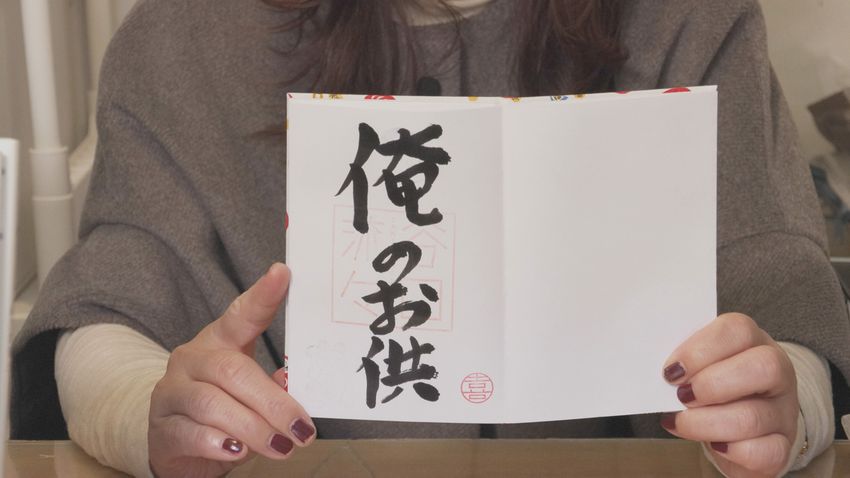 俺のお供
喜